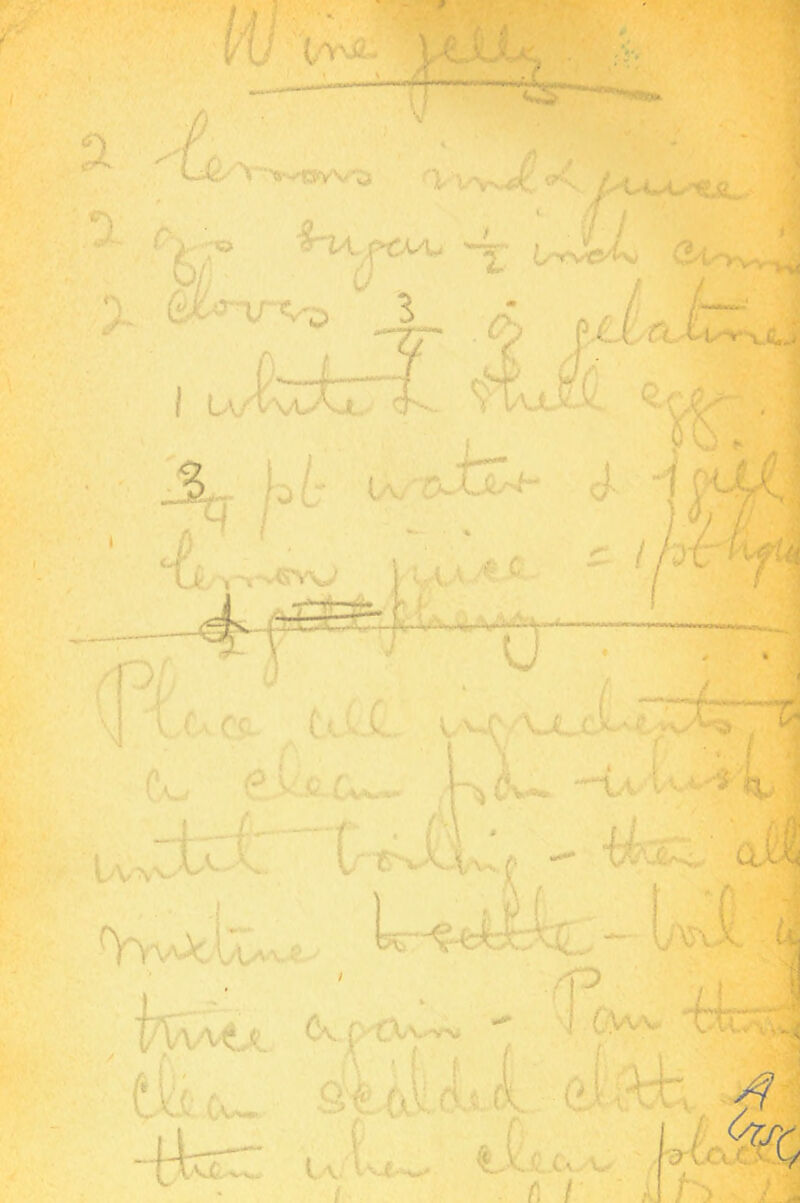 Wine Jelly
2 lemons rind & juice
2 ozs sugar ½ inch cinn
2 cloves ¾ oz gelatine
1 white & shell egg.
¾ pt water & 1 gill
lemon juice = 1 pt liqu
&
Place all ingredients
a clean pan - whisk
until boiling - then all
mixture to settle - boil
twice again - Pour thro
clean scalded cloth
then when clear place